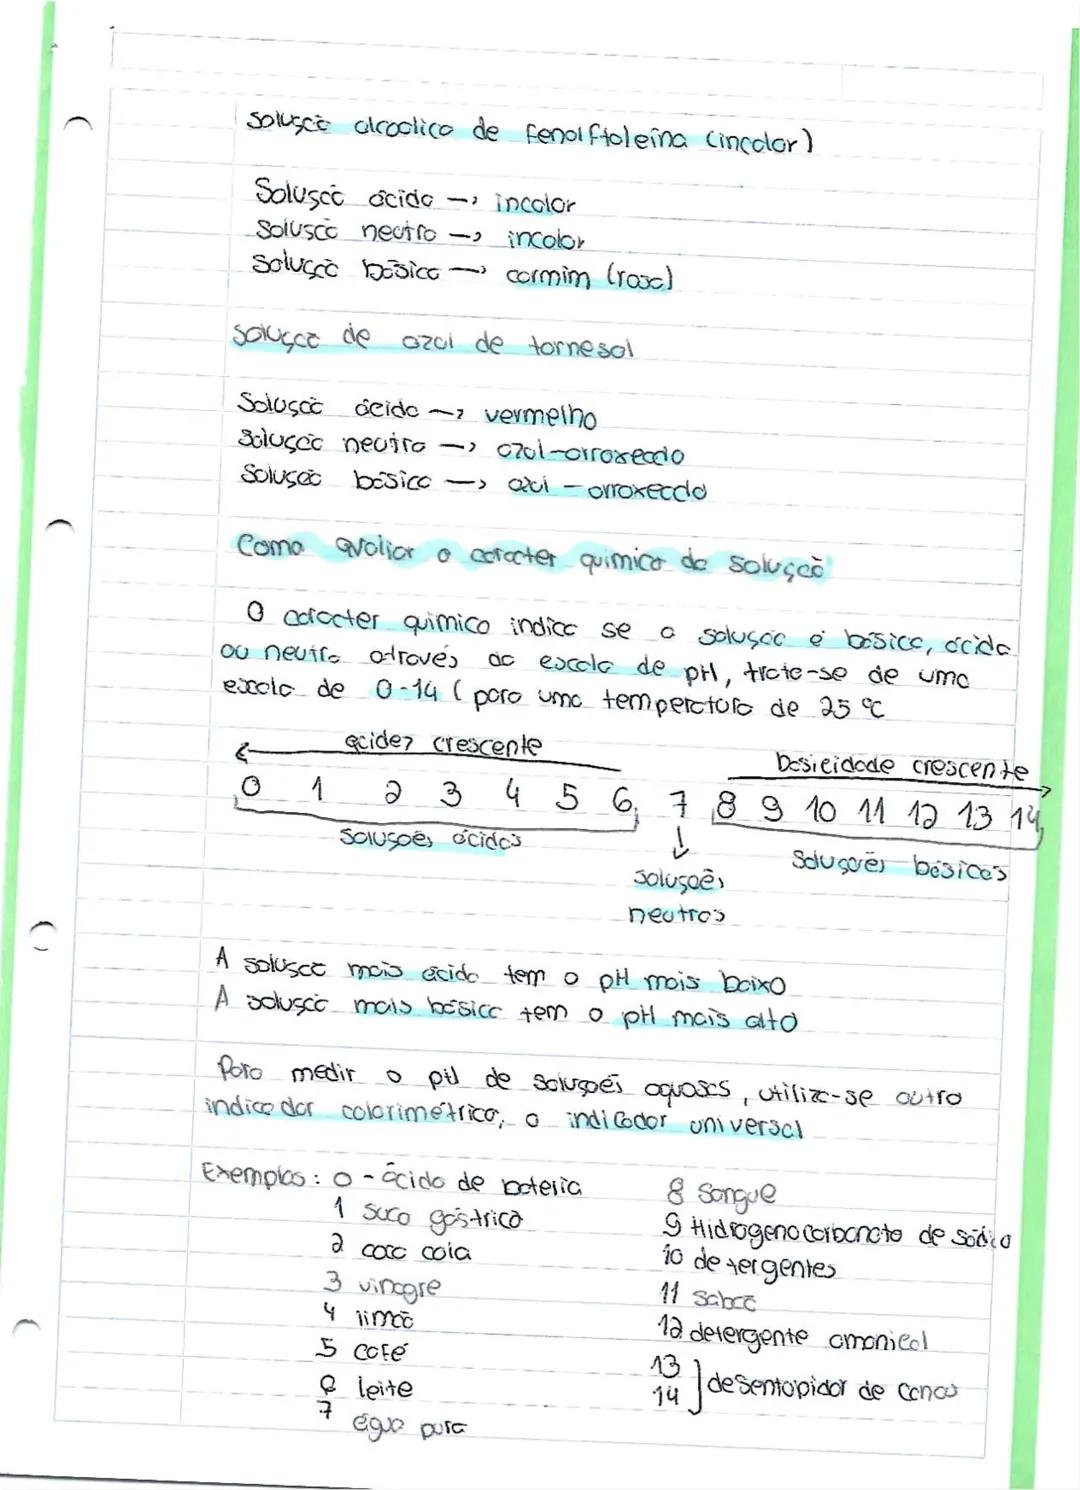 Solução alcoólica de fenolftoleína (incolor)
Solução ácida → incolor
Solução neutra → incolor
Solução básica → carmim (rosa)
Solução de azul de tornesol
Solução ácida → vermelho
Solução neutra → azul-arroxeado
Solução básica → azul-arroxeado
Como avaliar o caracter quimico da solução
O caracter quimico indica se a solução é básica, ácida
ou neutra através da escala de pH, trata-se de uma
escala de 0-14 (para uma temperatura de 25 ºC
acidez crescente
basicidade crescente
0 1 2 3 4 5 6 7 8 9 10 11 12 13 14
Soluções ácidas
Soluções básicas
Soluções
neutras
A solução mais ácida tem o pH mais baixo
A solução mais básica tem o pH mais alto
Para medir o pH de soluções aquosas, utiliza-se outro
indicador colorimétrico, o indicador universal
Exemplos: 0 - ácido de bateria
1 suco gástrico
2 coca cola
3 vinagre
4 limão
5 café
6 leite
7 água pura
8 sangue
9 Hidrogenocarbonato de sódio
10 detergentes
11 sabão
12 detergente amoniacal
13
14 ] desentopidor de canos